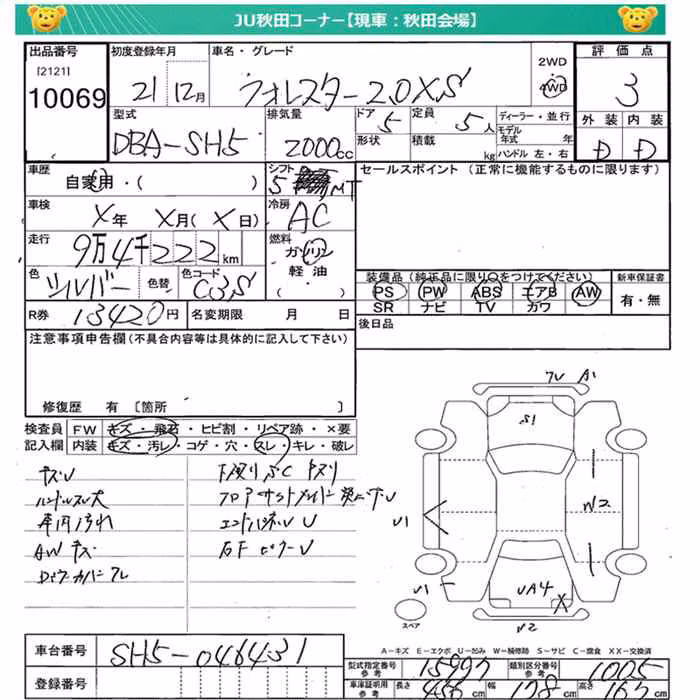 JU秋田コーナー【現車：秋田会場】
出品番号 初度登録年月 車名・グレード 2WD 評価点
[2121] 10069 21 12月 フォレスター 2.0XS 4WD 3
型式 排気量 ドア 定員 ディーラー・並行 外装 内装
DBA-SH5 2000cc 5 5人 モデル年式 年 D D
形状 積載 kg ハンドル 左・右
車歴 シフト セールスポイント (正常に機能するものに限ります)
自家用・( ) 5 MT
車検 冷房
X年 X月(X日) AC
走行 燃料
9万4千222km ガソリン
色 色替 色コード 軽油 装備品(純正品に限り〇をつけてください) 新車保証書
シルバー C3S ( ) PS PW ABS エアB AW 有・無
SR ナビ TV カワ
R券 13420円 名変期限 月 日 後日品
注意事項申告欄(不具合内容等は具体的に記入して下さい)
修復歴 有 [箇所 ]
検査員 FW キズ・飛石・ヒビ割・リペア跡・×要
記入欄 内装 キズ・汚レ・コゲ・穴・スレ・キレ・破レ
キズU
ハンドルスレ大
車内汚れ
AWキズ
エンドパネルU
7U A1
S1
U1
W2
U1
UA4 X
W2
スペア
A－キズ E－エクボ U－凹み W－補修跡 S－サビ C－腐食 XX－交換済
車台番号 SH5-046431
登録番号
型式指定番号 参考 15997 類別区分番号 参考 1005
車庫証明用 参考 長さ 456cm 幅 178cm 高さ 167cm